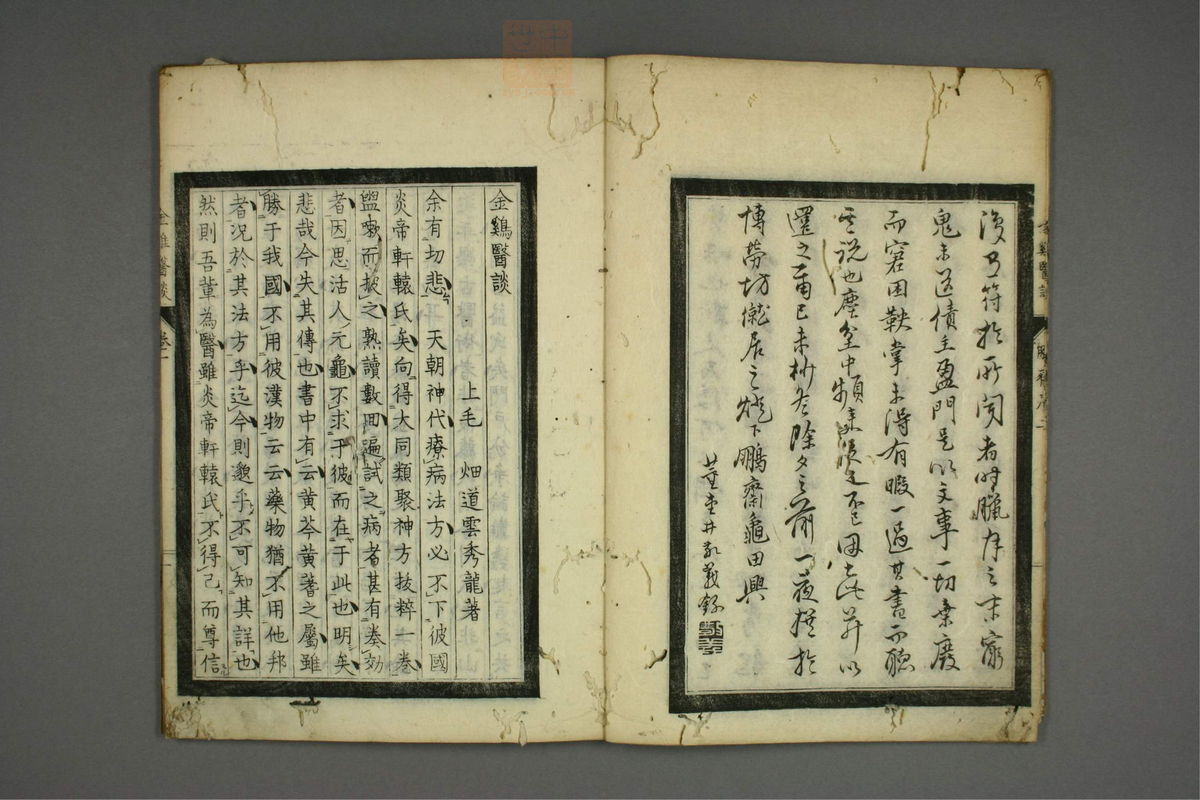 復乃符於所聞者時臘月之末窮
鬼未送債主盈門是以文事一切棄廢
而窘困鞅掌未得有暇一過其書而聽
其說也塵坌中頻來不已因此并以
還之爾己未抄冬除夕之前一夜撰於
博勞坊僦居之燈下鵬齋龜田興
董堂井敬義録
金鷄醫談
上毛 畑道雲秀龍著
余有切悲 天朝神代療病法方必不下彼國
炎帝軒轅氏矣向得大同類聚神方抜粹一巻
盥嗽而披之熟讀數回遍試之病者甚有奏効
者因思活人元龜不求于彼而在于此也明矣
悲哉今失其傳也書中有云黄芩黄蓍之屬雖
勝于我國不用彼漢物云云藥物猶不用他邦
者況於其法方乎迄今則邈乎不可知其詳也
然則吾輩為醫雖炎帝軒轅氏不得已而尊信